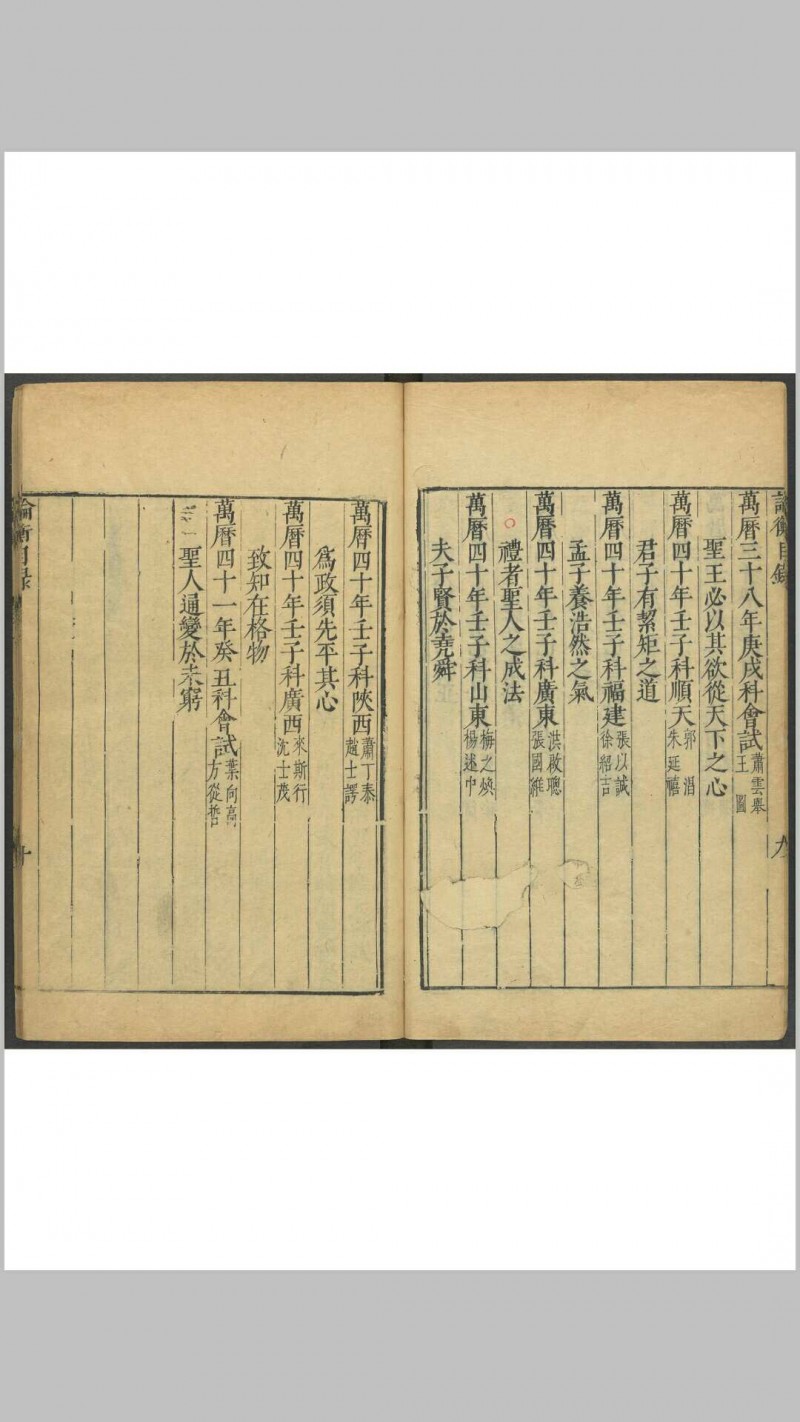 論衡目錄 九
萬曆三十八年庚戌科會試 蕭雲舉 王圖
聖王必以其欲從天下之心
萬曆四十年壬子科順天 郭淐 朱延禧
君子有絜矩之道
萬曆四十年壬子科福建 張以誠 徐紹吉
孟子養浩然之氣
萬曆四十年壬子科廣東 洪啟聰 張國維
禮者聖人之成法
萬曆四十年壬子科山東 梅之煥 楊述中
夫子賢於堯舜
萬曆四十年壬子科陝西 蕭丁泰 趙士諤
為政須先平其心
萬曆四十年壬子科廣西 來斯行 沈士茂
致知在格物
萬曆四十一年癸丑科會試 葉向高 方從哲
聖人通變於未窮
論衡目錄 十